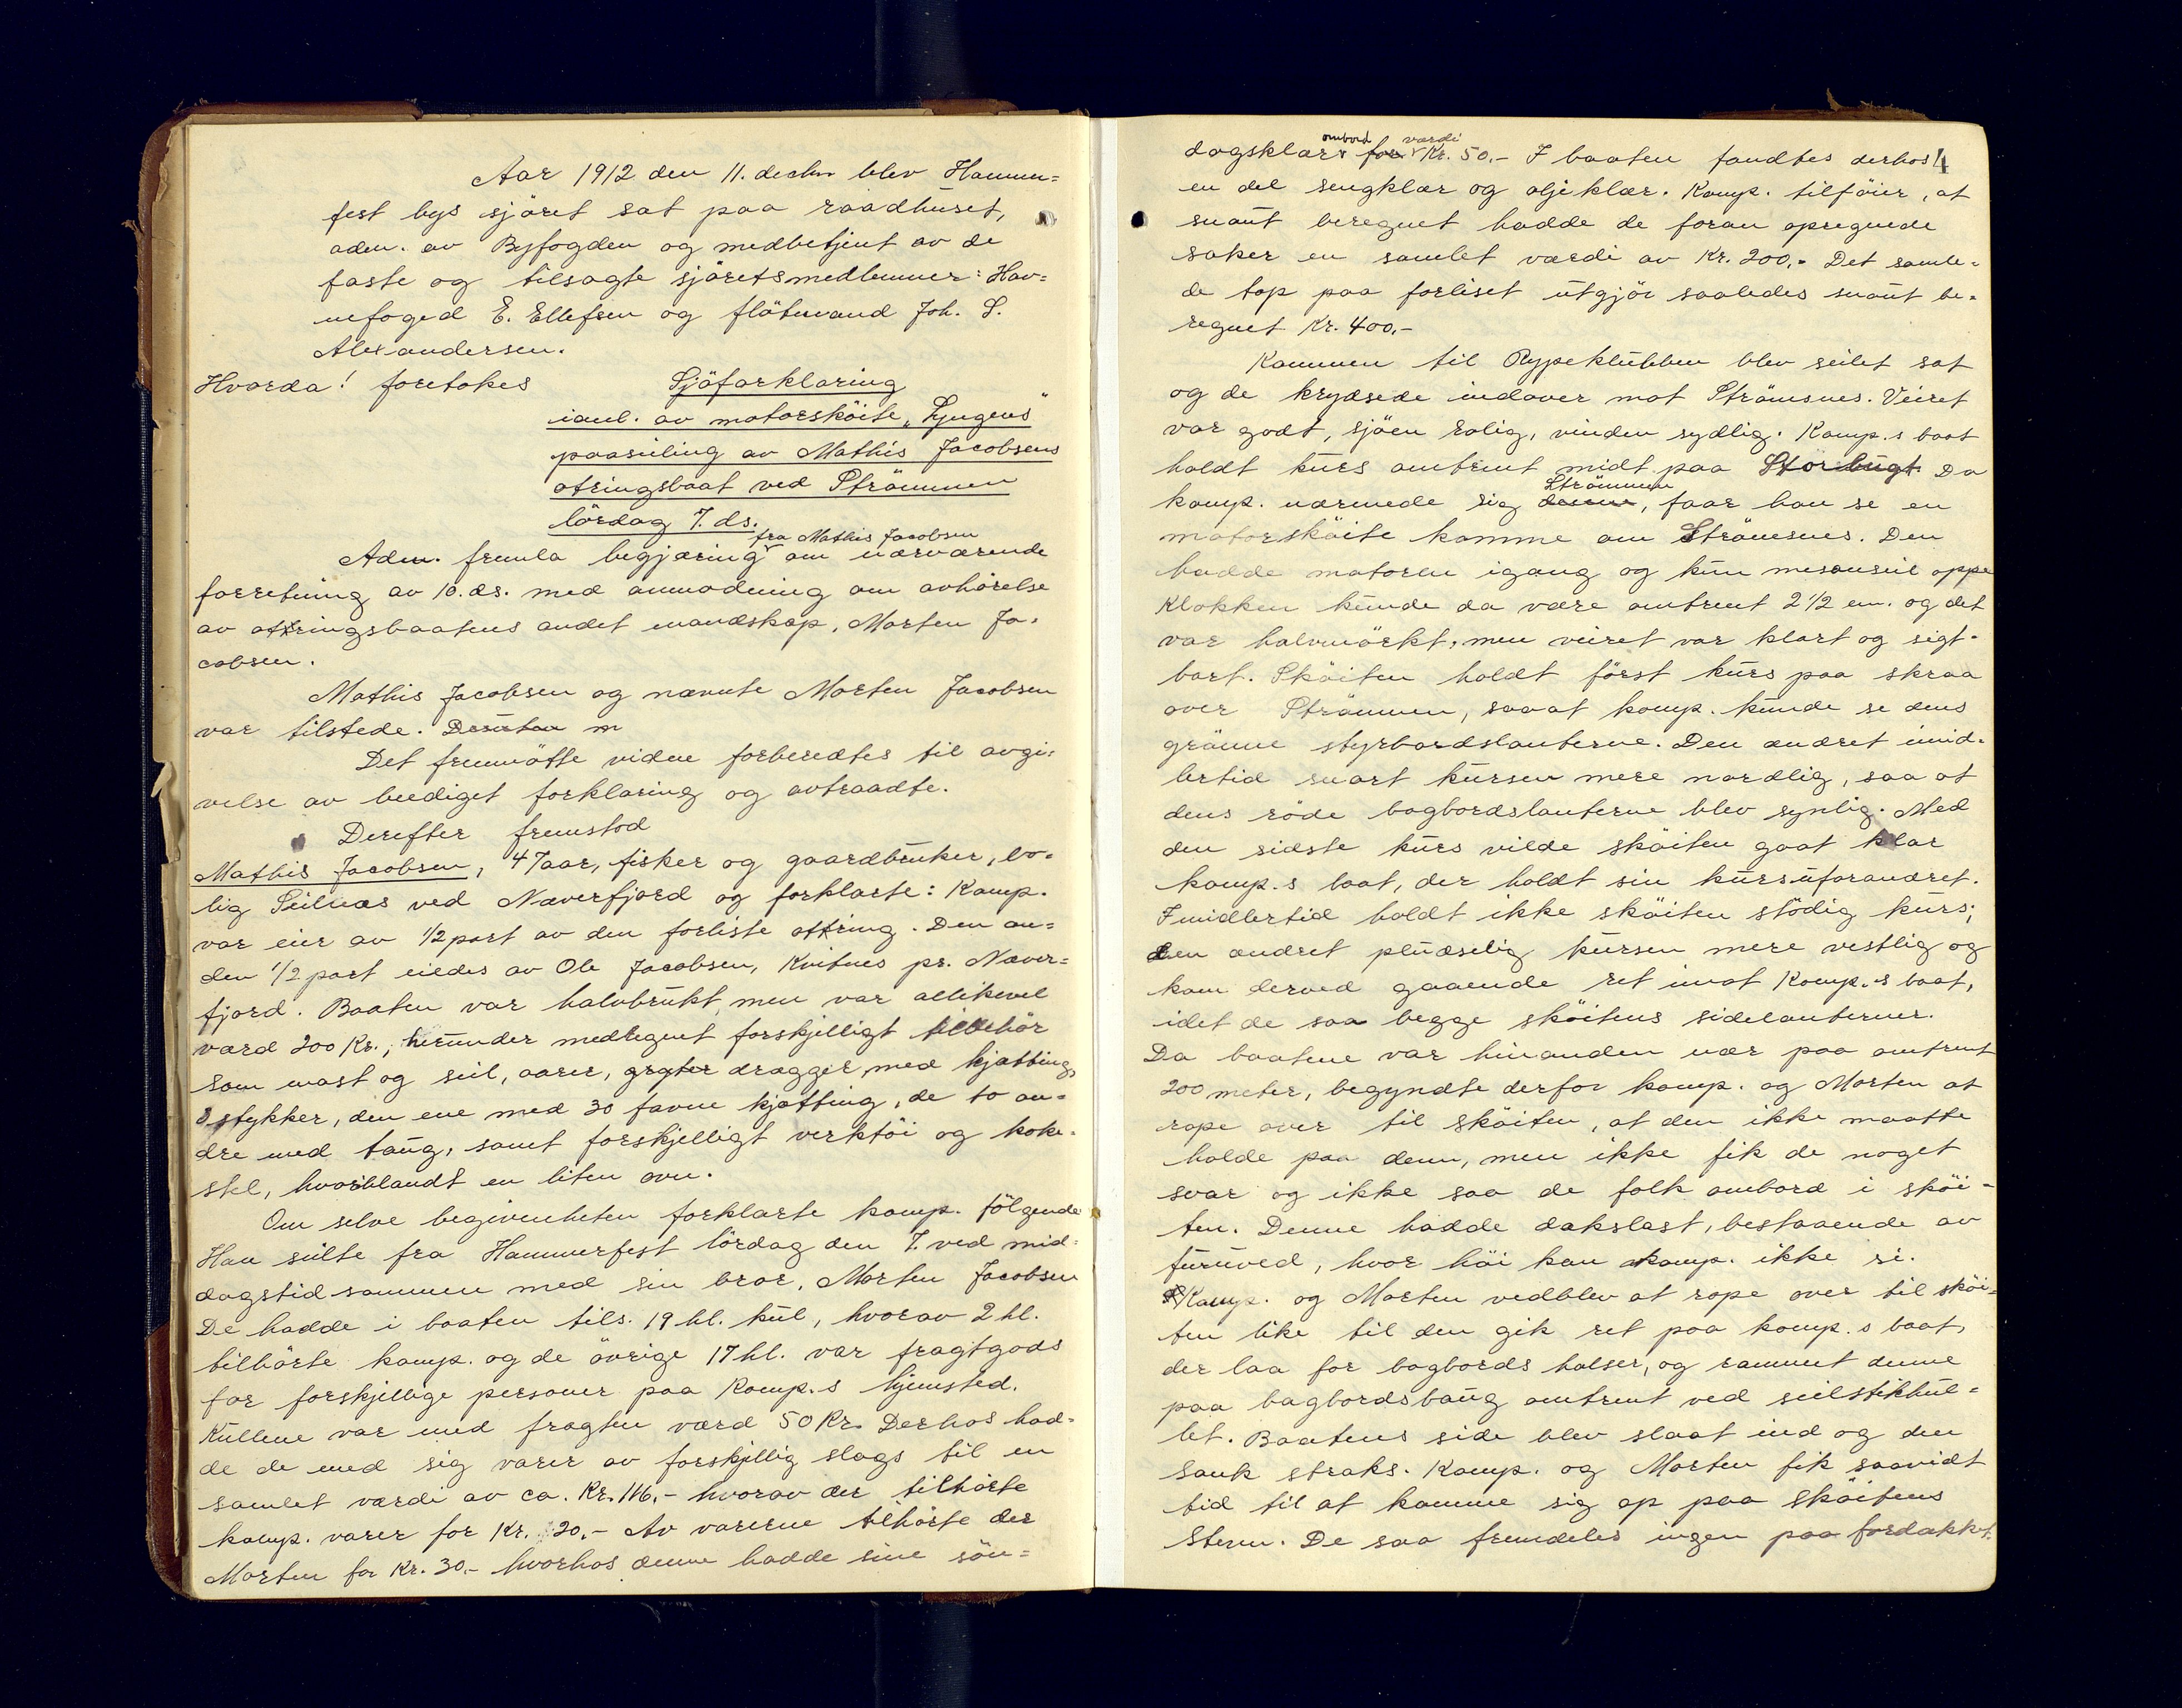 Aar 1912 den 11. decbr blev Hammer=
fest bys sjöret sat paa raadhuset,
adm. av Byfogden og medbetjent av de
faste og tilsagte sjöretsmedlemmer: Hav=
nefoged E. Ellefsen og flötmand Joh. S.
Alexandersen.
Hvorda! foretokes Sjöforklaring
ianl. av motorsköite „Lyngens"
paaseiling av Mathis Jacobsens
otringsbaat ved Strömmen
lördag 7. ds.
fra Mathis Jacobsen
Adm. fremla begjæring om nærværende
forretning av 10. ds. med anmodning om avhörelse
av ottringsbaatens andet mandskap, Morten Ja-
cobsen.
Mathis Jacobsen og nævnte Morten Jacobsen
var tilstede. Desuten m
Det fremmötte vidne forberedtes til avgi-
velse av beediget forklaring og avtraadte.
Derefter fremstod
Mathis Jacobsen, 47 aar, fisker og gaardbruker, bo-
lig Seilnæs ved Næverfjord og forklarte: Komp.
var eier av 1/2 part av den forliste ottring. Den an=
den 1/2 part eiedes av Ole Jacobsen, Kvitnes pr. Næver=
fjord. Baaten var halvbrukt, men var allikevel
værd 200 Kr., herunder medregnet forskjelligt tilbehör
som mast og seil, aarer, gryter dragger med kjætting,
3 stykker, den ene med 30 favne kjætting, de to an=
dre med taug, samt forskjelligt verktöi og koke-
stel, hvoriblandt en liten ovn.
Om selve begivenheten forklarte komp. fölgende
Han seilte fra Hammerfest lördag den 7. ved mid=
dagstid sammen med sin bror, Morten Jacobsen
De hadde i baaten tils. 19 hl. kul, hvorav 2 hl.
tilhörte komp. og de övrige 17 hl. var fragtgods
for forskjellige personer paa Komp.s hjemsted.
Kullene var med fragten værd 50 Kr. Derhos had=
de de med sig varer av forskjellig slags til en
samlet værdi av ca. Kr. 116,- hvorav der tilhörte
komp. varer for Kr. 20,- Av varerne tilhörte der
Morten for Kr. 30,- hvorhos denne hadde sine sön=
4
ombord værdi
dagsklær for Kr. 50.- I baaten fandtes derhos
en del sengklær og oljeklær. Komp. tilföier, at
snaut beregnet hadde de foran opregnede
saker en samlet værdi av Kr. 200,- Det samle-
de tap paa forliset utgjör saaledes snaut be-
regnet Kr. 400,-
Kommen til Rypeklubben blev seilet sat
og de krydsede indover mot Strömsnes. Veiret
var godt, sjöen rolig, vinden sydlig. Komp.s baat
holdt kurs omtrent midt paa Storbugt. Da
Strömmen
komp. nærmede sig denne, faar han se en
motorsköite komme om Strömsnes. Den
hadde motoren igang og kun mesanseil oppe
Klokken kunde da være omtrent 2 1/2 em. og det
var halvmörkt, men veiret var klart og sigt-
bart. Sköiten holdt först kurs paa skraa
over Strömmen, saaat komp. kunde se dens
grönne styrbordslanterne. Den ændret imid-
lertid snart kursen mere nordlig, saa at
dens röde bagbordslanterne blev synlig. Med
den sidste kurs vilde sköiten gaat klar
komp.s baat, der holdt sin kurs uforandret.
Imidlertid holdt ikke sköiten stödig kurs;
den ændret pludselig kursen mere vestlig og
kom derved gaaende ret imot Komp.s baat,
idet de saa begge sköitens sidelanterner.
Da baatene var hinanden nær paa omtrent
200 meter, begyndte derfor komp. og Morten at
rope over til sköiten, at den ikke maatte
holde paa dem, men ikke fik de noget
svar og ikke saa de folk ombord i sköi-
ten. Denne hadde dækslast, bestaaende av
furuved, hvor höi kan komp. ikke si.
Komp. og Morten vedblev at rope over til sköi-
ten like til den gik ret paa komp.s baat,
der laa for bagbords halser, og rammet denne
paa bagbordsbaug omtrent ved seilstikhul-
let. Baatens side blev slaat ind og den
sank straks. Komp. og Morten fik saavidt
tid til at komme sig op paa sköitens
stevn. De saa fremdeles ingen paa fordækket.